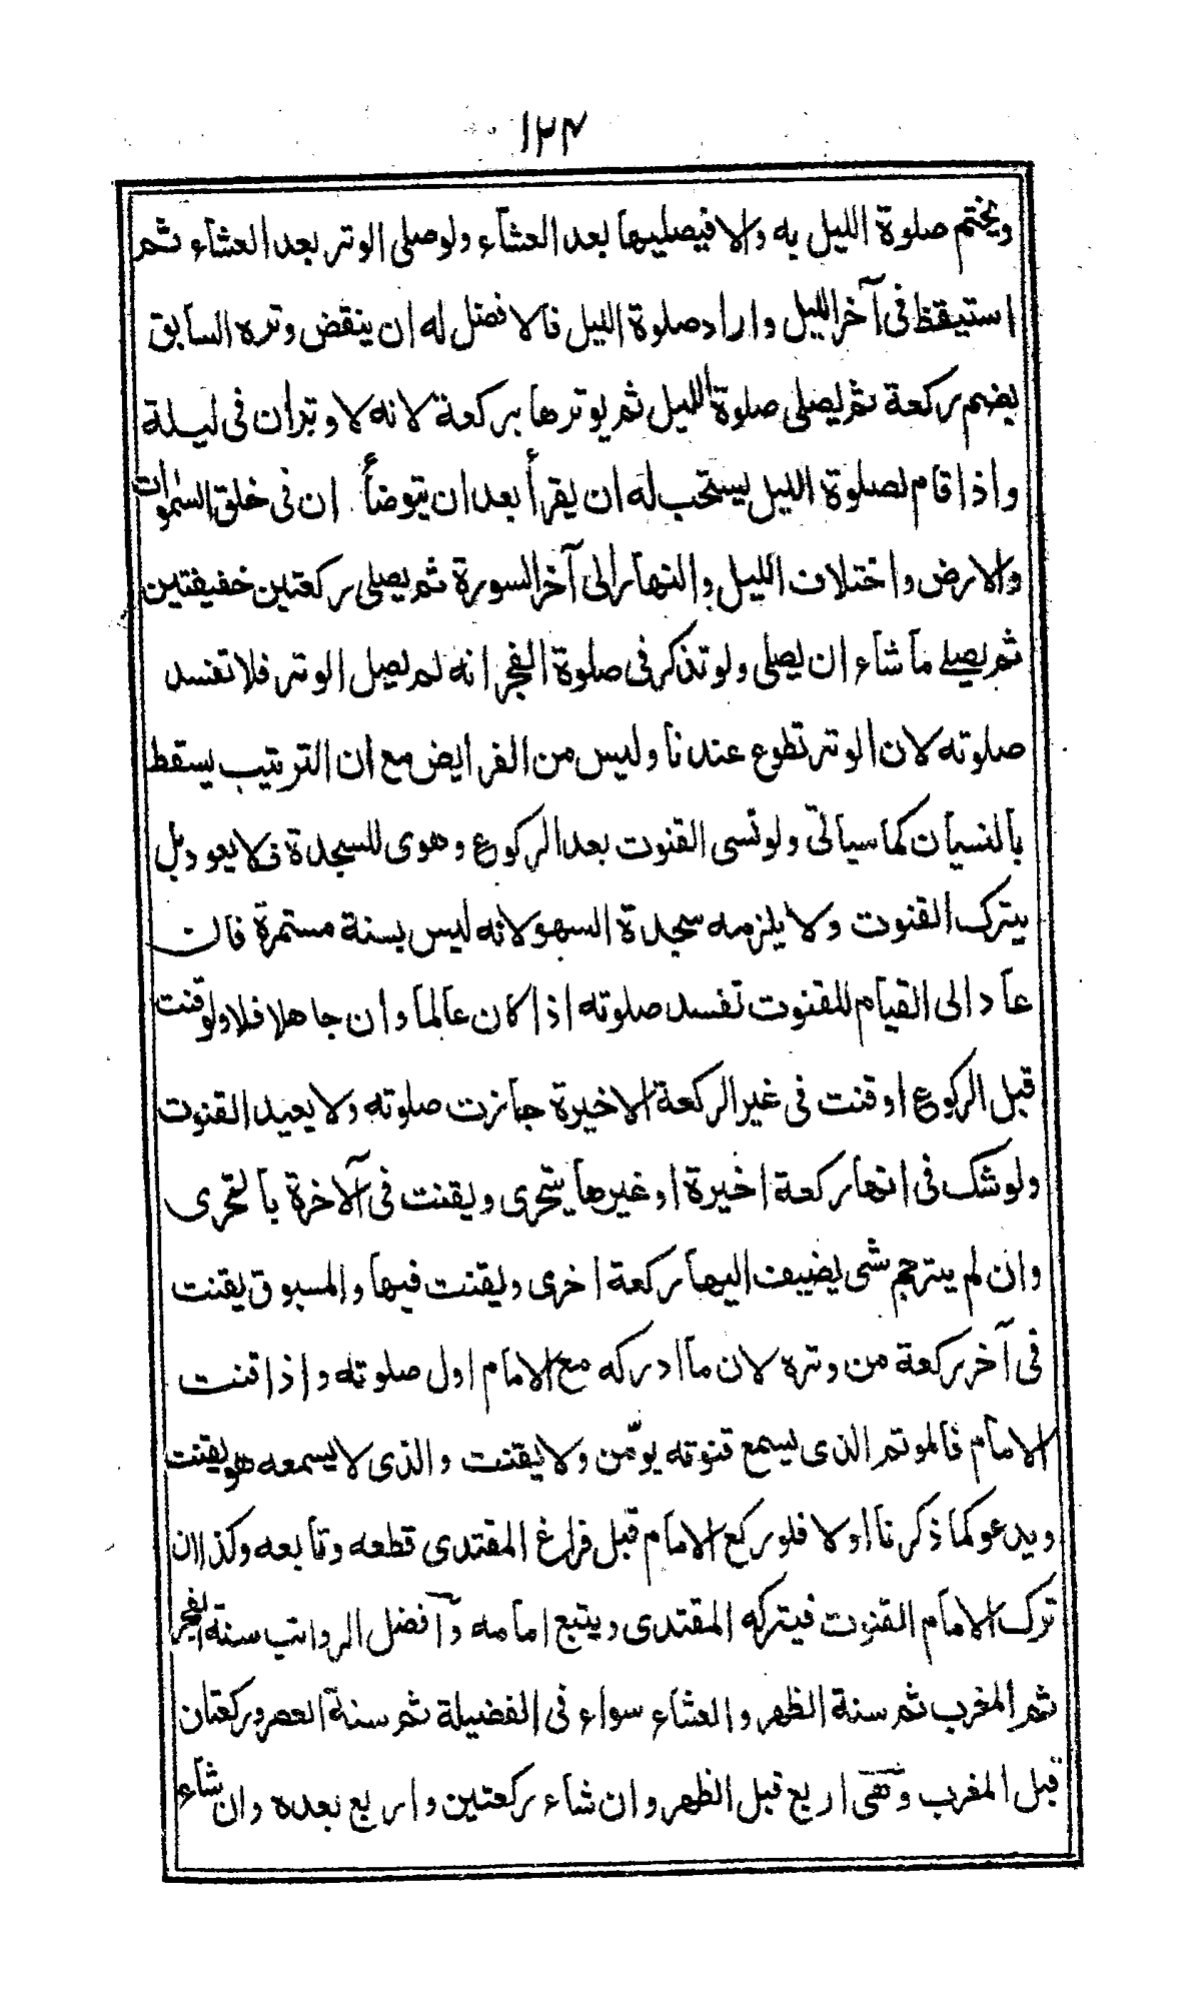 ١٢٤
ويختم صلوة الليل به والا فيصليها بعد العشآء ولو صلى الوتر بعد العشاء ثم
استيقظ فى آخر الليل واراد صلوة الليل فالافضل له ان ينقض وتره السابق
بضم ركعة ثم يصلى صلوة الليل ثم يوترها بركعة لانه لا وتران فى ليلة
واذا قام لصلوة الليل يستحب له ان يقرأ بعد ان يتوضأ ان فى خلق السموات
والارض واختلاف الليل والنهار الى آخر السورة ثم يصلى ركعتين خفيفتين
ثم يصلے ما شاء ان يصلى ولو تذكر فى صلوة الفجر انه لم يصل الوتر فلا تفسد
صلوته لان الوتر تطوع عندنا وليس من الفرايض مع ان الترتيب يسقط
بالنسيان كما سياتى ولو نسى القنوت بعد الركوع وهوى للسجدة فلا يعود بل
يترك القنوت ولا يلزمه سجدة السهو لانه ليس بسنة مستمرة فان
عاد الى القيام للقنوت تفسد صلوته اذا كان عالما وان جاهلا فلا ولو قنت
قبل الركوع او قنت فى غير الركعة الاخيرة جازت صلوته ولا يعيد القنوت
ولو شك فى انها ركعة اخيرة او غيرها يتحرى ويقنت فى الآخرة بالتحرى
وان لم يترجح شى يضيف اليها ركعة اخرى ويقنت فيها والمسبوق يقنت
فى آخر ركعة من وتره لان ما ادركه مع الامام اول صلوته واذا قنت
الامام فالموتم الذى يسمع قنوته يؤمن ولا يقنت والذى لا يسمعه هو يقنت
ويدعو كما ذكرنا اولا فلو ركع الامام قبل فراغ المقتدى قطعه وتابعه وكذا ان
ترك الامام القنوت فيتركه المقتدى ويتبع امامه وآفضل الرواتب سنة الفجر
ثم المغرب ثم سنة الظهر والعشاء سواء فى الفضيلة ثم سنة العصر وركعتان
قبل المغرب وهى اربع قبل الظهر وان شاء ركعتين واربع بعده وان شاء